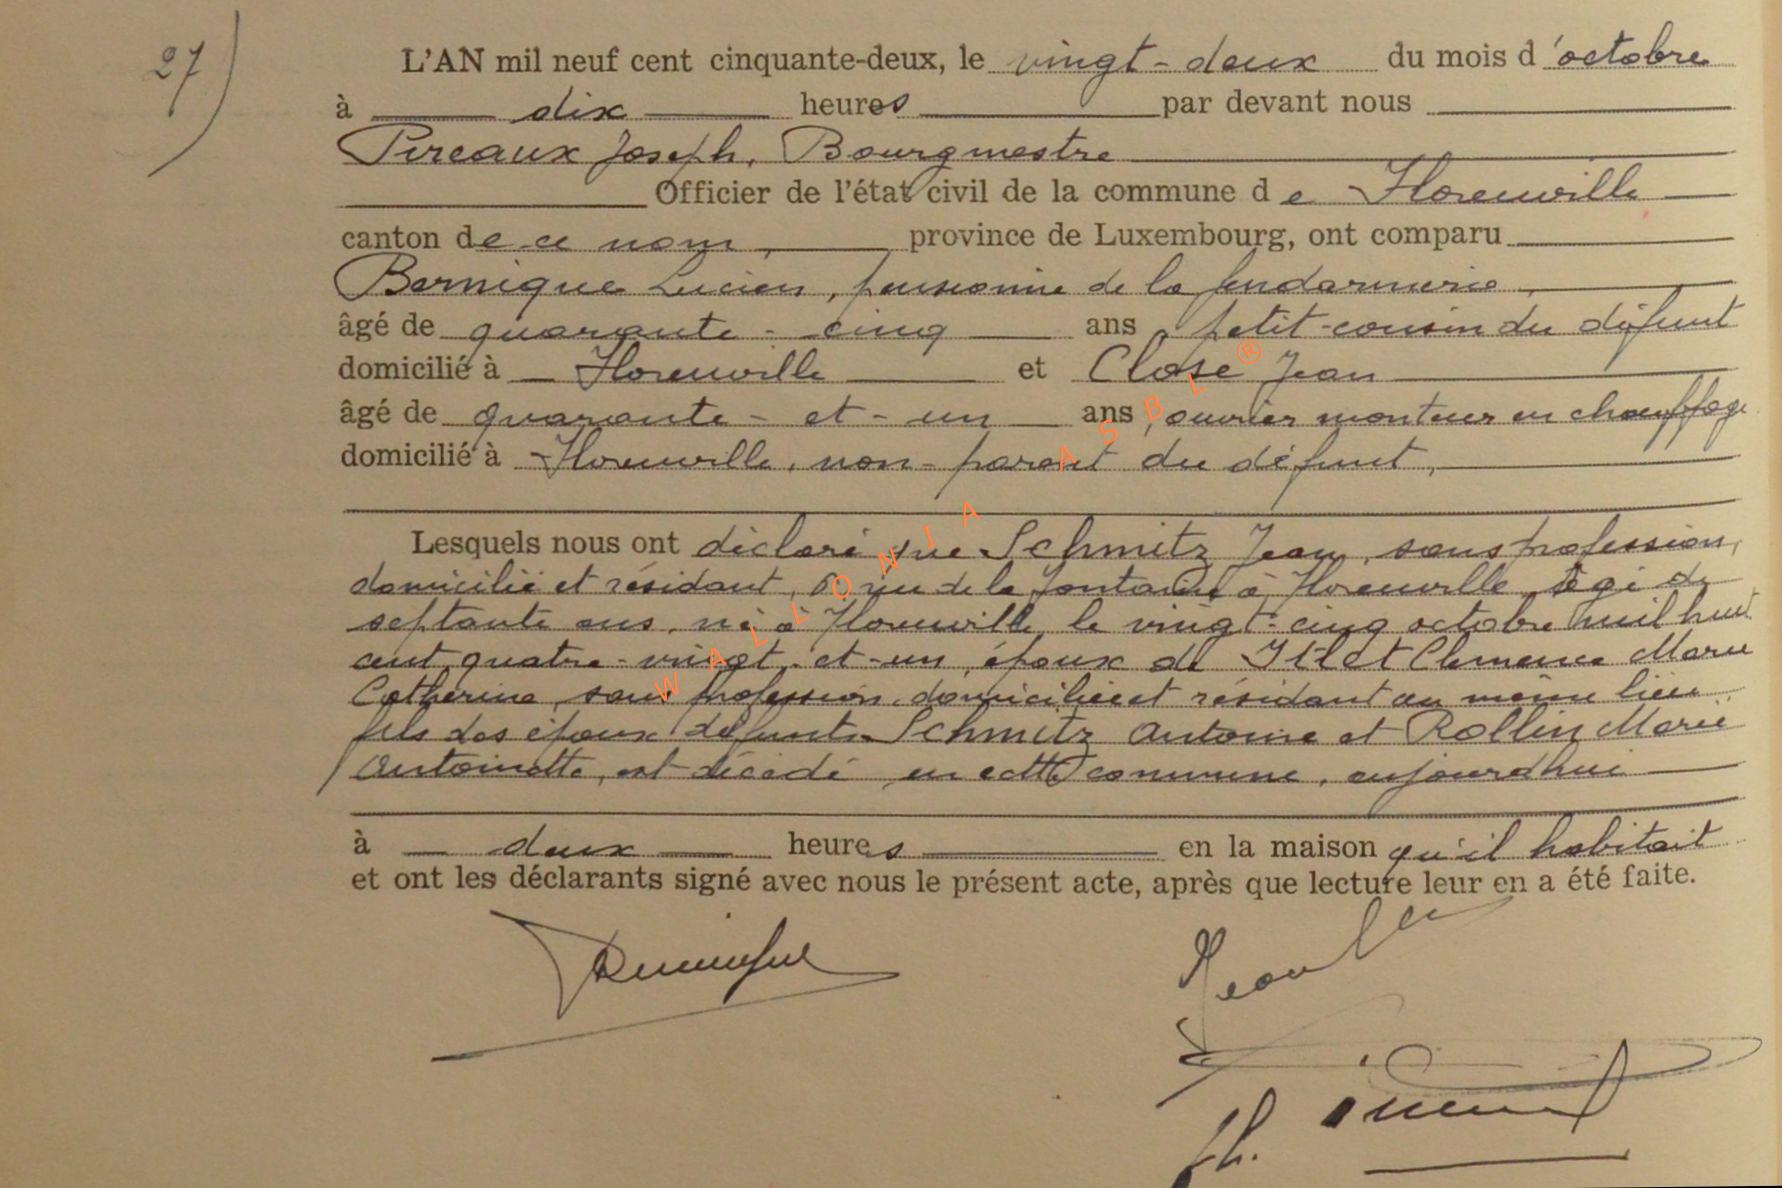 27)
L'AN mil neuf cent cinquante-deux, le vingt-deux du mois d'octobre
à dix heures par devant nous
Pireaux Joseph, Bourgmestre
Officier de l'état civil de la commune de Florenville
canton de ce nom, province de Luxembourg, ont comparu
Bernique Lucien, pensionné de la gendarmerie,
âgé de quarante-cinq ans, petit-cousin du défunt
domicilié à Florenville et Close Jean
âgé de quarante-et-un ans, ouvrier monteur en chauffage
domicilié à Florenville, non-parent du défunt,
Lesquels nous ont déclaré que Schmitz Jean, sans profession,
domicilié et résidant, rue de la fontaine à Florenville, âgé de
septante ans, né à Florenville le vingt-cinq octobre mil huit
cent quatre-vingt-et-un, époux de Clémence Marie
Catherine, sans profession, domiciliée et résidant au même lieu,
fils des époux défunts Schmitz Antoine et Rollin Marie
Antoinette, est décédé en cette commune, aujourd'hui
à deux heures en la maison qu'il habitait
et ont les déclarants signé avec nous le présent acte, après que lecture leur en a été faite.
WALLONIA ASBL ®